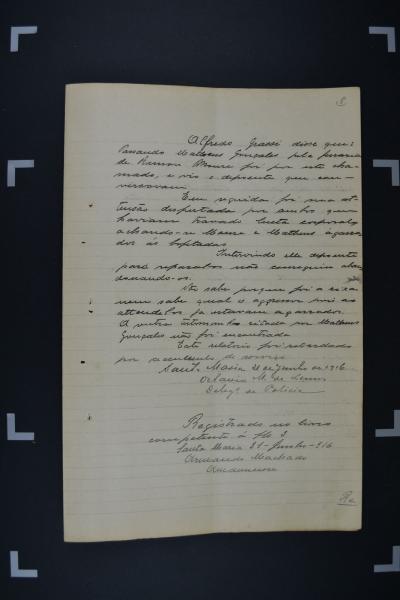 8
Alfredo Grassi disse que:
Passando Matheus Gonçales pela pharmacia
de Ramon Moure foi por este cha-
mado, e vio o depoente que con-
versavam.
Em seguida foi sua at-
tenção dispertada por ambos que
haviam travado lucta corporal,
achando-se Moure e Matheus agarra-
dos ás bofetadas.
Intervindo elle depoente
para separal-os não conseguiu aban-
donando-os.
Não sabe porque foi a rixa
nem sabe qual o aggressor pois ao
attendel-os já estavam agarrados.
A outra testemunha citada por Matheus
Gonçales não foi encontrada.
Este relatorio foi retardado
por accumulo de serviço.
Santa Maria 21 de Junho de 1916.
Octavio M. de Lemos
Deleg. de Policia
Registrado no livro
competente á fls 3
Santa Maria 21-Junho-916
Armando Machado
Amanuense
Re